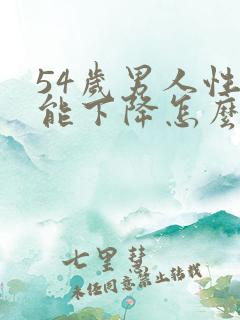 54歲男人性
能下降怎麼
七里彗
未經同意禁止轉載